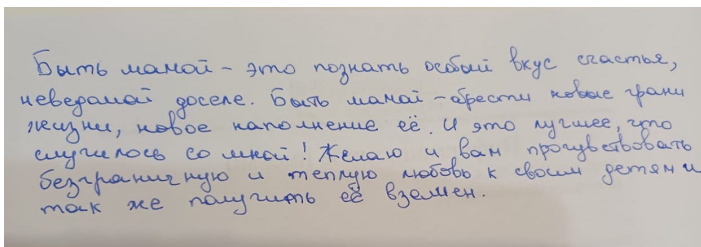 Быть мамой - это познать особый вкус счастья,
неведомой доселе. Быть мамой - обрести новые грани
жизни, новое наполнение её. И это лучшее, что
случилось со мной! Желаю и вам прочувствовать
безграничную и теплую любовь к своим детям и
так же получить её взамен.